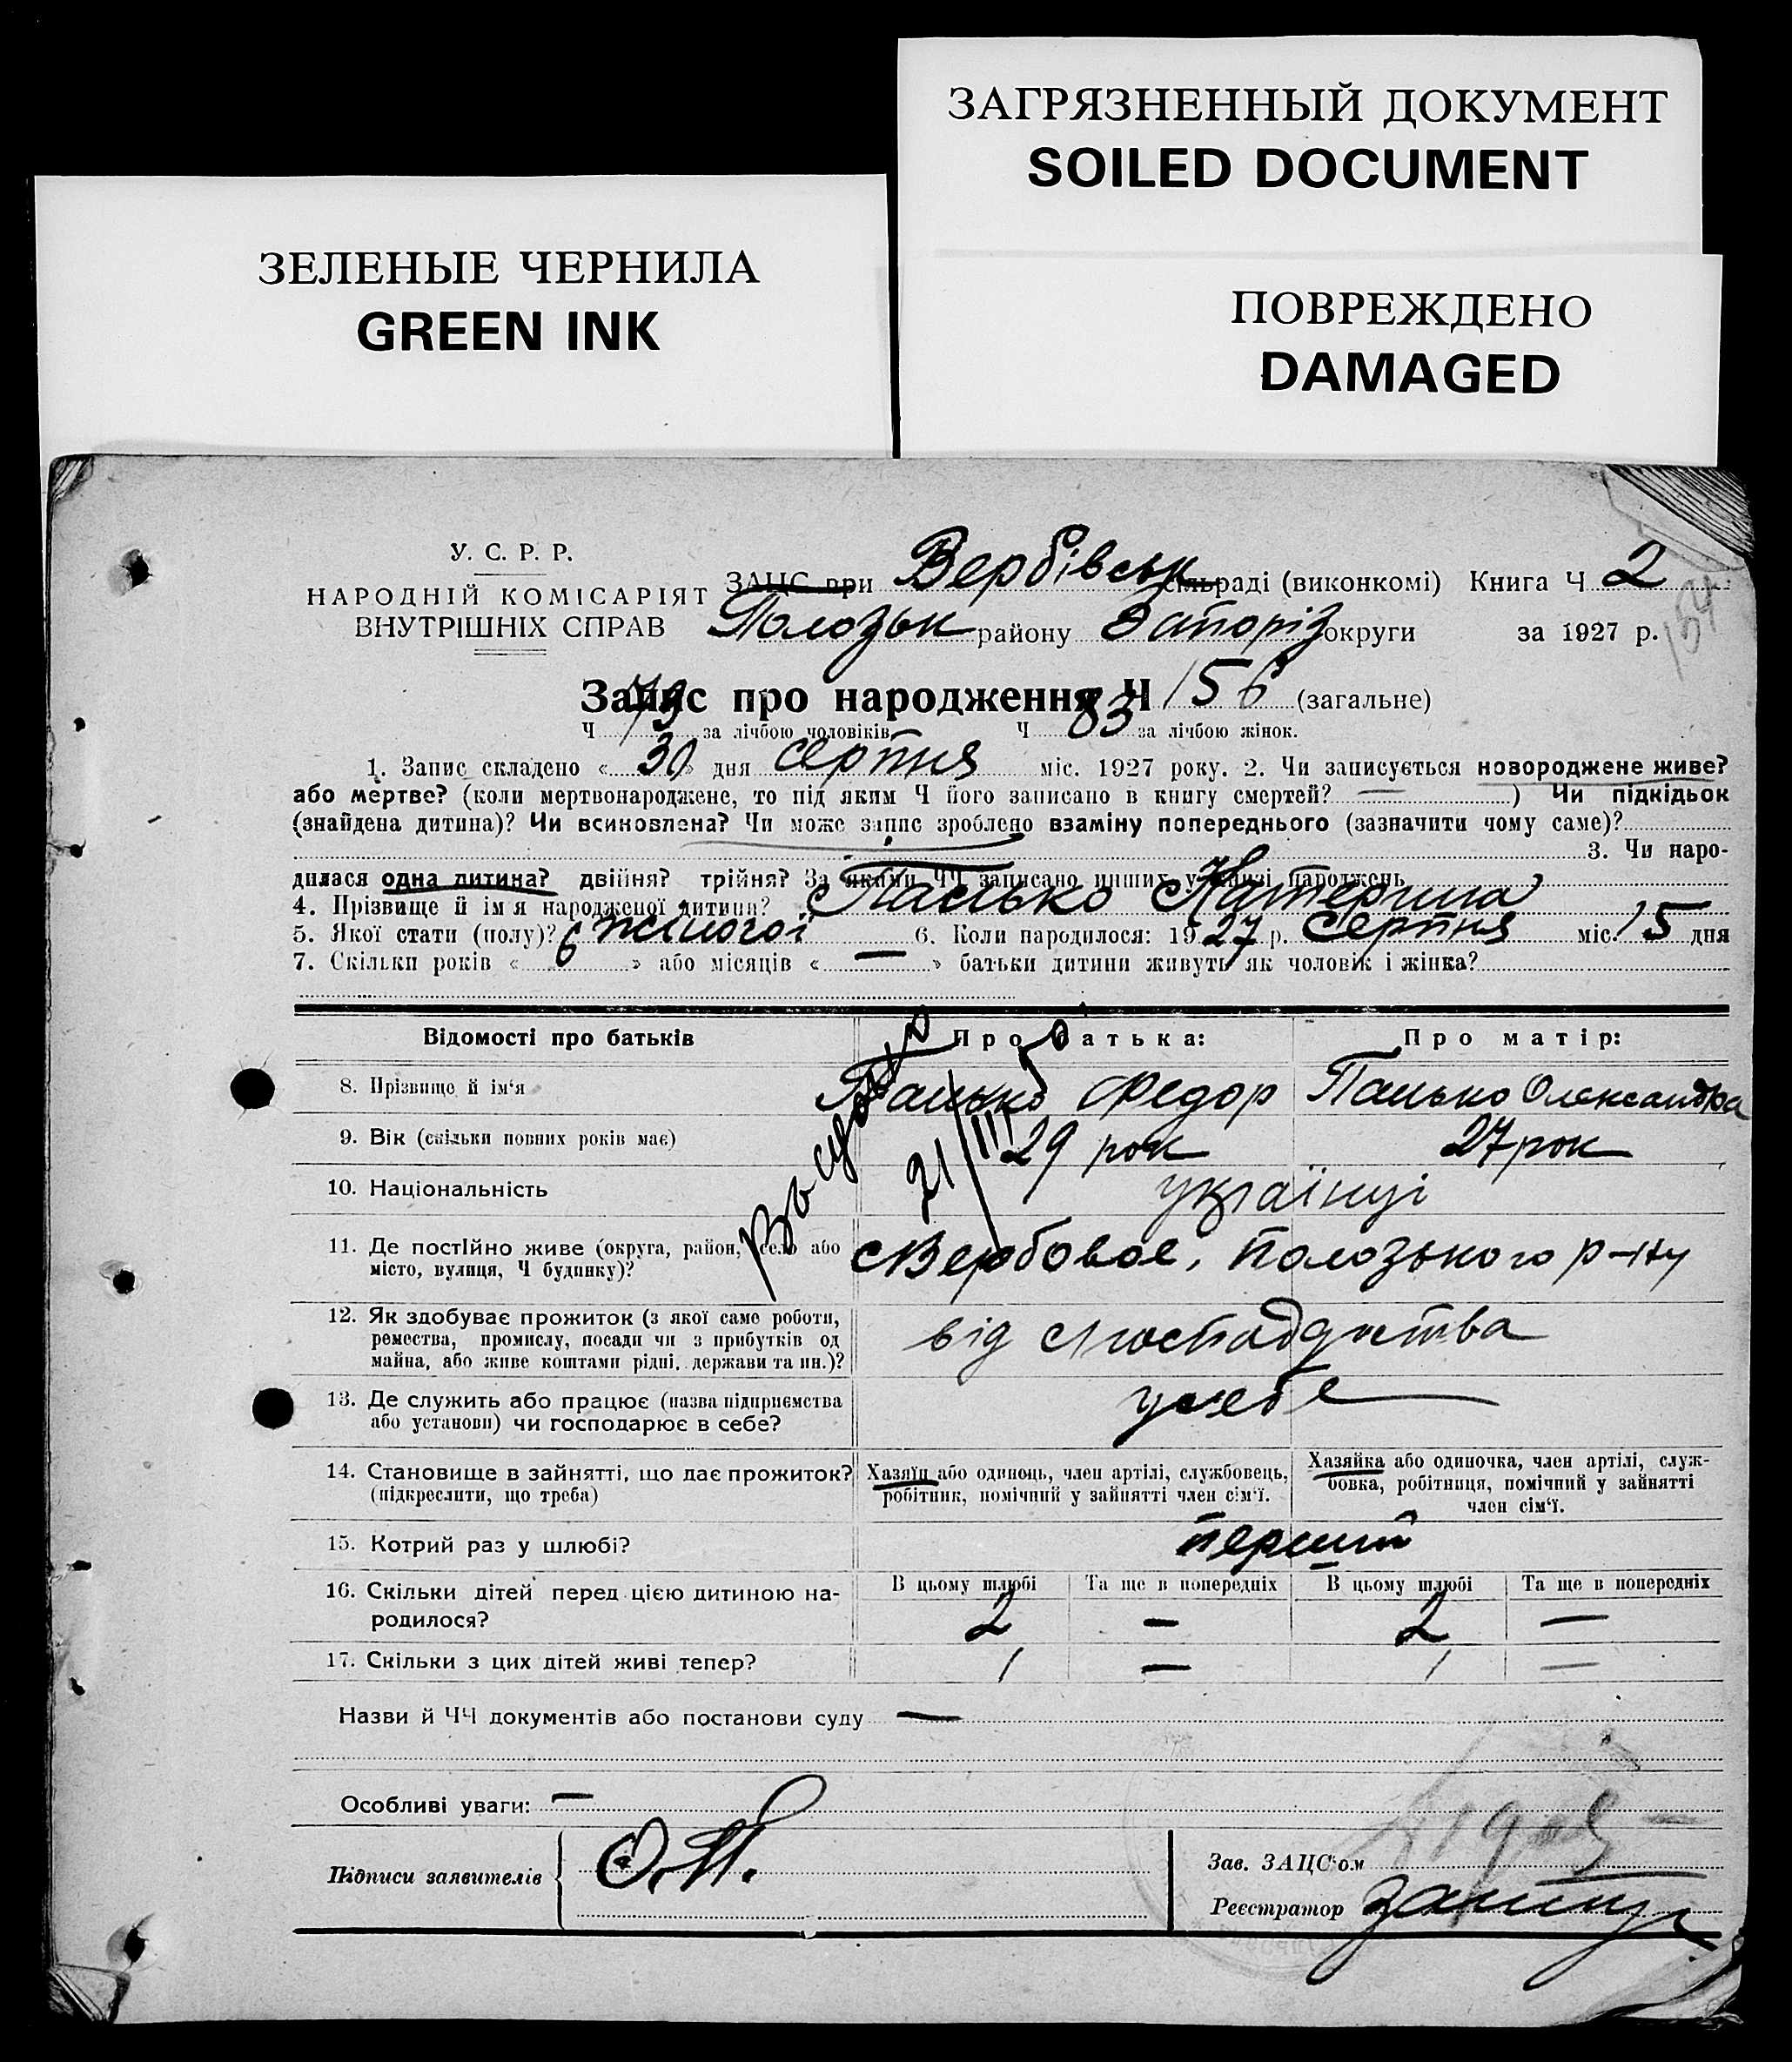 ЗАГРЯЗНЕННЫЙ ДОКУМЕНТ
SOILED DOCUMENT
ЗЕЛЕНЫЕ ЧЕРНИЛА
GREEN INK
ПОВРЕЖДЕНО
DAMAGED
У. С. Р. Р.
НАРОДНІЙ КОМІСАРІЯТ
ВНУТРІШНІХ СПРАВ
ЗАЦС при Вербівськ сільраді (виконкомі) Книга Ч 2
154
Полозьк району Запоріз округи за 1927 р.
Запис про народження Ч 156 (загальне)
Ч 73 за лічбою чоловіків Ч 83 за лічбою жінок.
1. Запис складено « 30 » дня серпня міс. 1927 року. 2. Чи записується новороджене живе?
або мертве? (коли мертвонароджене, то під яким Ч його записано в книгу смертей? — ) Чи підкідьок
(знайдена дитина)? Чи всиновлена? Чи може запис зроблено взаміну попереднього (зазначити чому саме)?
3. Чи наро-
дилася одна дитина? двійня? трійня? За якими ЧЧ записано инших у книзі народжень
4. Прізвище й ім'я народженої дитини? Панько Катерина
5. Якої стати (полу)? жіночої 6. Коли народилося: 1927 р. Серпня міс. 15 дня
7. Скільки років « 6 » або місяців « — » батьки дитини живуть як чоловік і жінка?
Відомості про батьків Про батька: Про матір:
8. Прізвище й ім'я Панько Федор Панько Олександра
9. Вік (скільки повних років має) 29 рок 27 рок
21/III
10. Національність українці
11. Де постійно живе (округа, район, село або
місто, вулиця, Ч будинку)? с Вербовое, Полозького р-ну
12. Як здобуває прожиток (з якої саме роботи,
ремества, промислу, посади чи з прибутків од
майна, або живе коштами рідні, держави та ин.)? від
13. Де служить або працює (назва підприємства
або установи) чи господарює в себе? у себе
14. Становище в зайнятті, що дає прожиток?
(підкреслити, що треба)
Хазяїн або одинець, член артілі, службовець,
робітник, помічний у зайнятті член сім'ї.
Хазяйка або одиночка, член артілі, служ-
бовка, робітниця, помічний у зайнятті
член сім'ї.
15. Котрий раз у шлюбі? перший
16. Скільки дітей перед цією дитиною на-
родилося?
В цьому шлюбі Та ще в попередніх В цьому шлюбі Та ще в попередніх
2 — 2 —
17. Скільки з цих дітей живі тепер? 1 — 1 —
Назви й ЧЧ документів або постанови суду —
Особливі уваги: —
Підписи заявителів О.П.
Зав. ЗАЦС'ом
Реєстратор